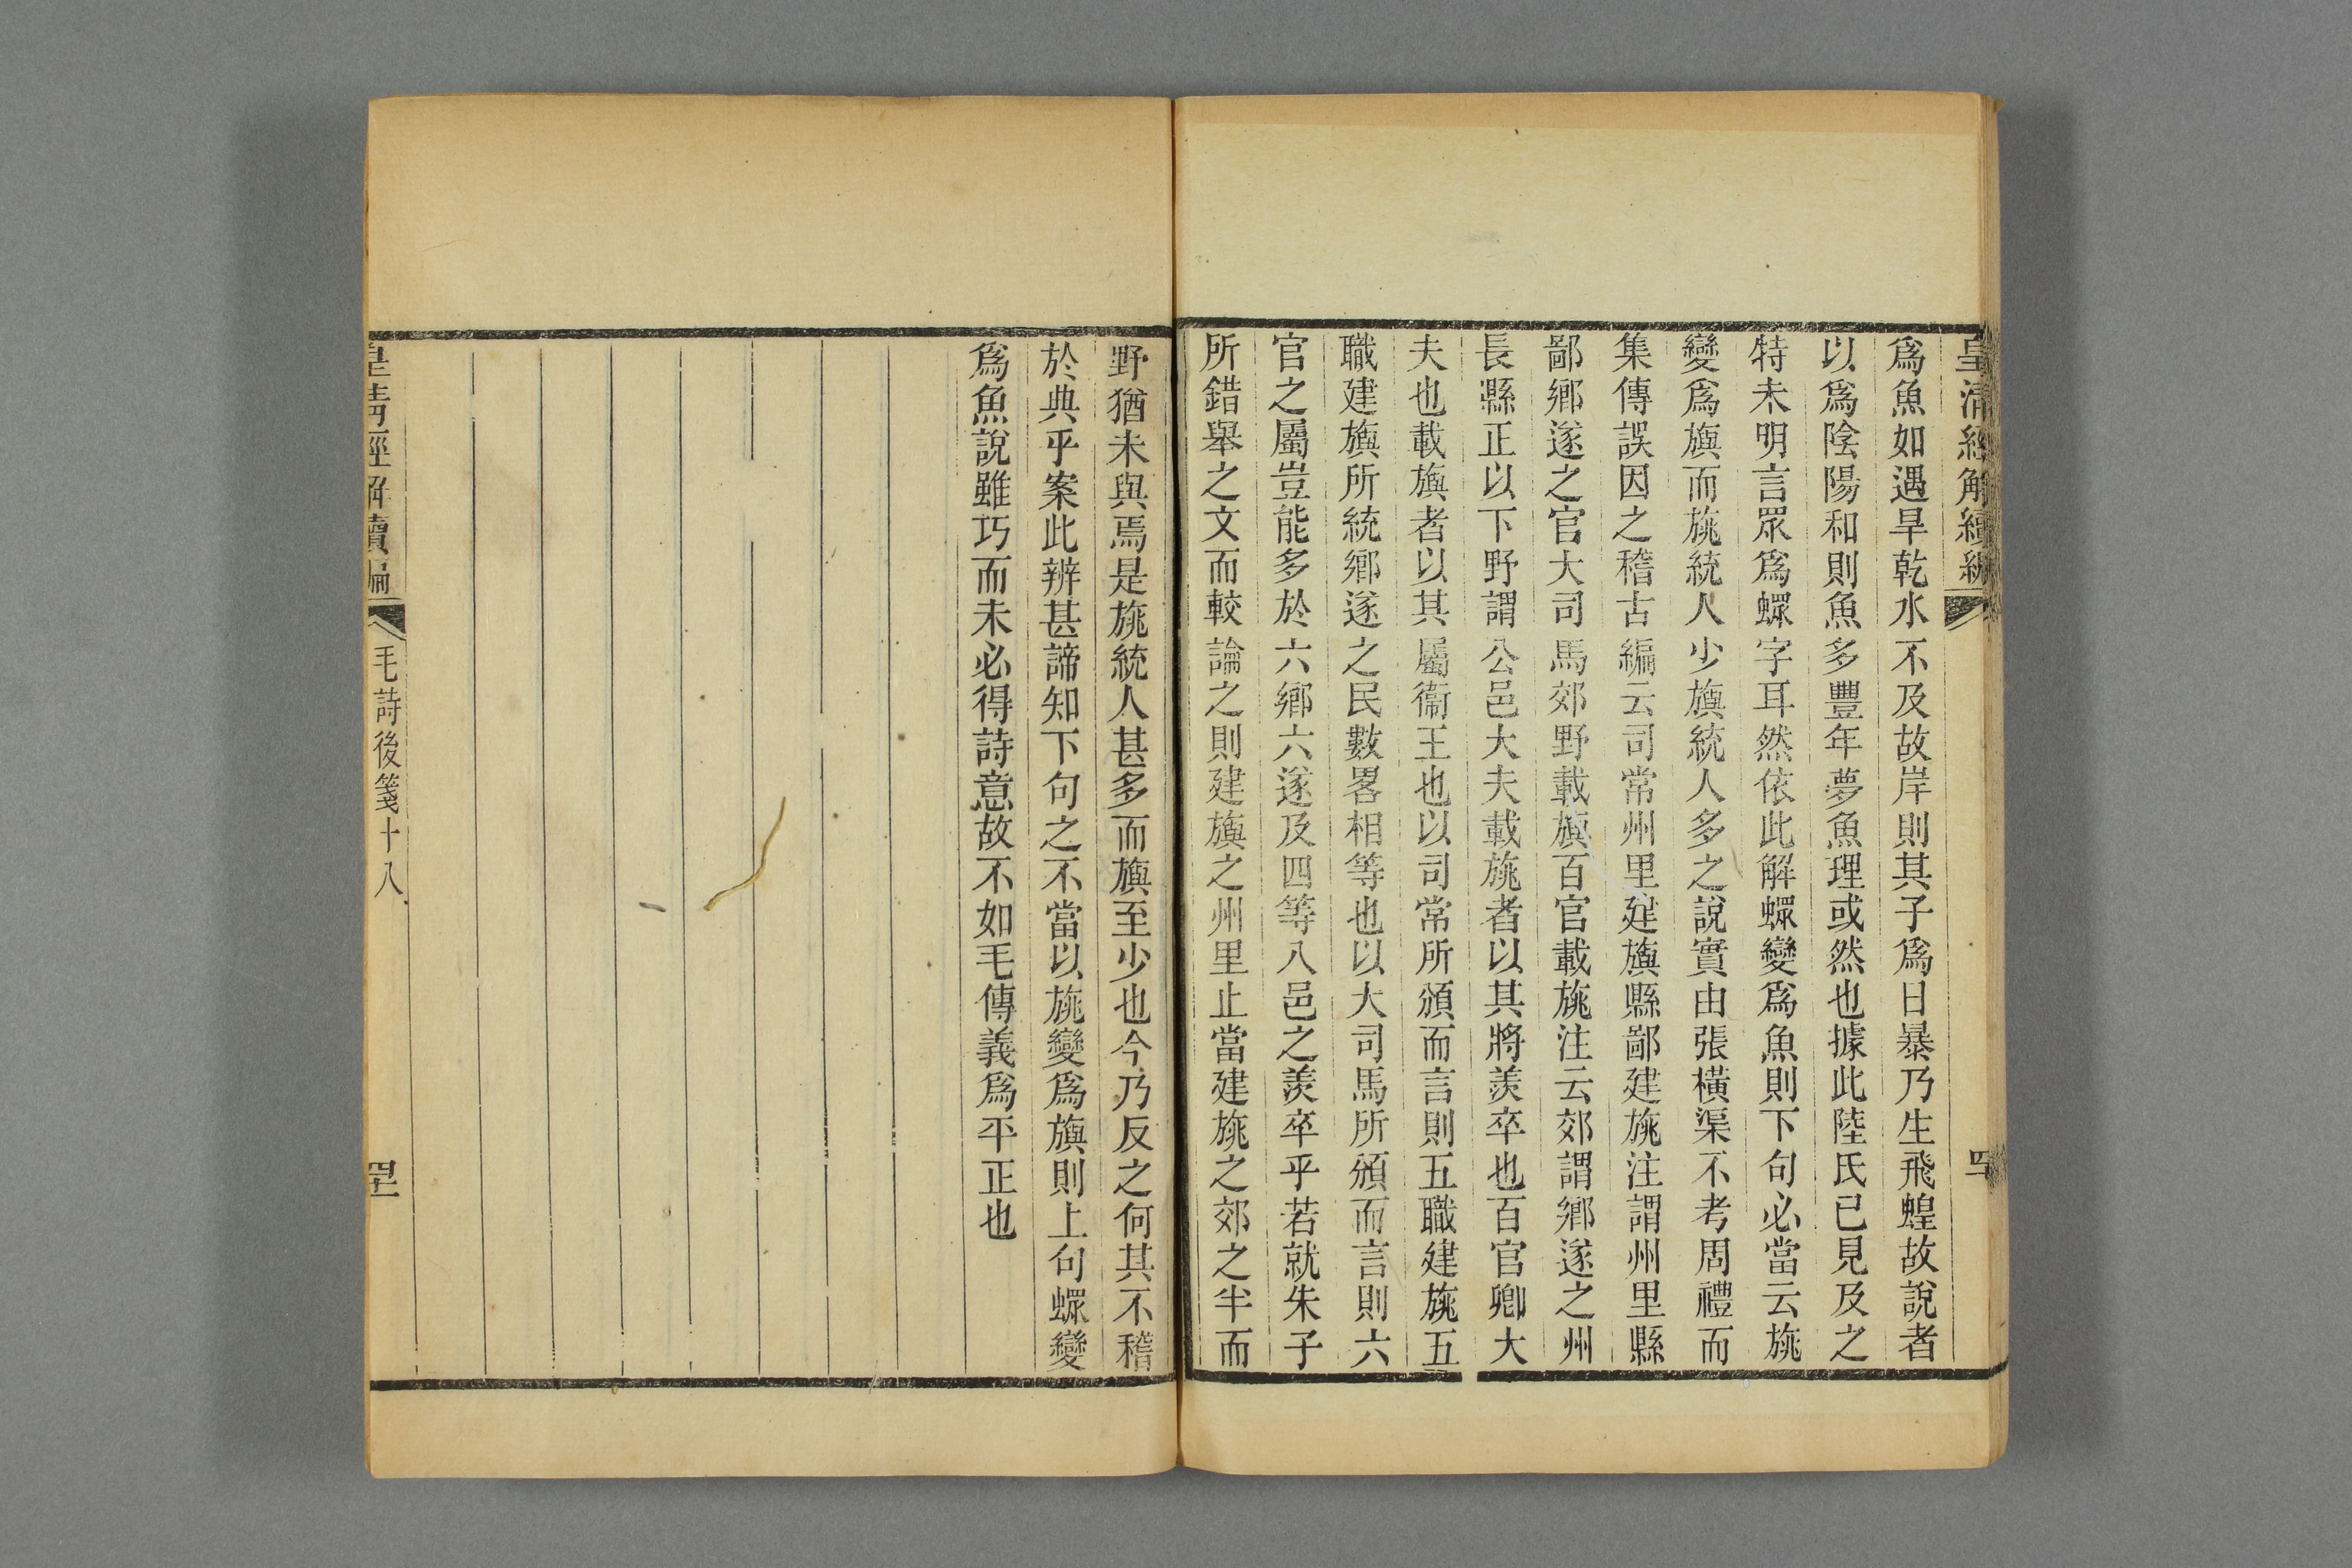 皇清經解續編
爲魚如遇旱乾水不及故岸則其子爲日暴乃生飛蝗故說者
以爲陰陽和則魚多豐年夢魚理或然也據此陸氏已見及之
特未明言眾爲螺字耳然依此解螺變爲魚則下句必當云旐
變爲旟而旐統人少旟統人多之說實由張橫渠不考周禮而
集傳誤因之稽古編云司常州里建旟縣鄙建旐注謂州里縣
鄙鄉遂之官大司馬郊野載旟百官載旐注云郊謂鄉遂之州
長縣正以下野謂公邑大夫載旐者以其將羨卒也百官卿大
夫也載旟者以其屬衞王也以司常所頒而言則五職建旐五
職建旟所統鄉遂之民數畧相等也以大司馬所頒而言則六
官之屬豈能多於六鄉六遂及四等八邑之羨卒乎若就朱子
所錯舉之文而較論之則建旟之州里止當建旐之郊之半而
野猶未與焉是旐統人甚多而旟至少也今乃反之何其不稽
於典乎案此辨甚諦知下句之不當以旐變爲旟則上句螺變
爲魚說雖巧而未必得詩意故不如毛傳義爲平正也
皇清經解續編
毛詩後箋十八